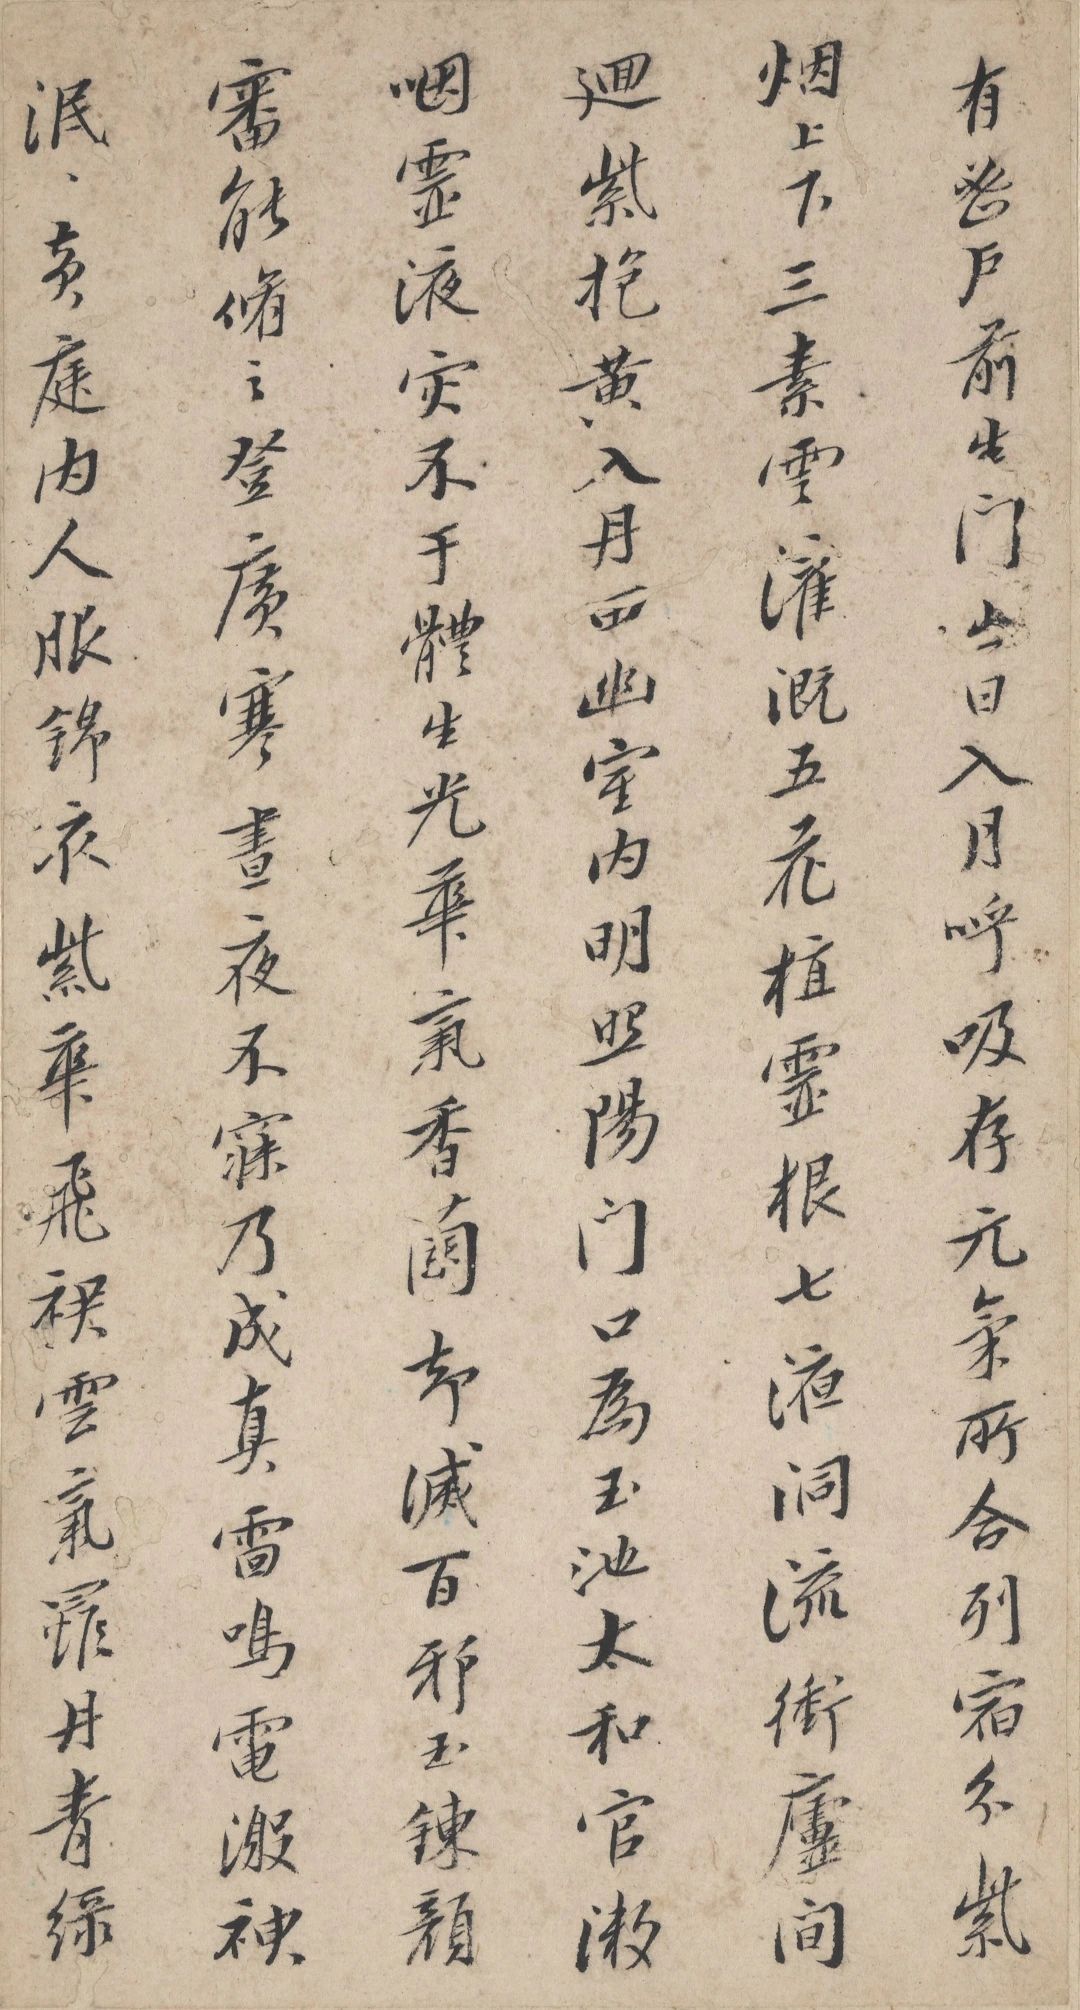 有密戶前生門出日入月呼吸存元氣所合列宿分紫
烟上下三素雲灌溉五花植靈根七液洞流衝廬間
迴紫抱黃入丹田幽室內明照陽門口為玉池太和官漱
咽靈液灾不干體生光華氣香蘭却滅百邪玉鍊顏
審能脩之登廣寒晝夜不寐乃成真雷鳴電激神
泯、黃庭內人服錦衣紫華飛裙雲氣羅丹青綠